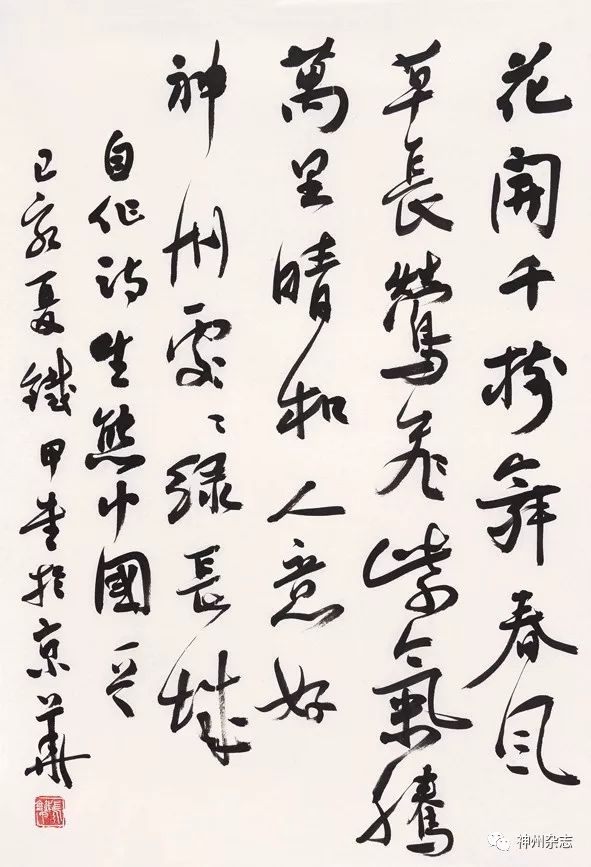 花開千樹舞春風
草長鶯飛紫氣騰
萬里晴和人意好
神州處〻綠長城
自作詩生態中國一首
己亥夏鐵甲書於京華
神州杂志